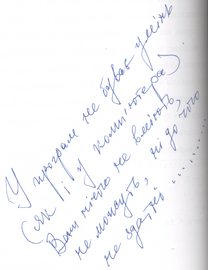 У програм не буває умінь
(як і у комп'ютера)
Вони нічого не вміють,
не можуть, ні до чого
не здатні ............